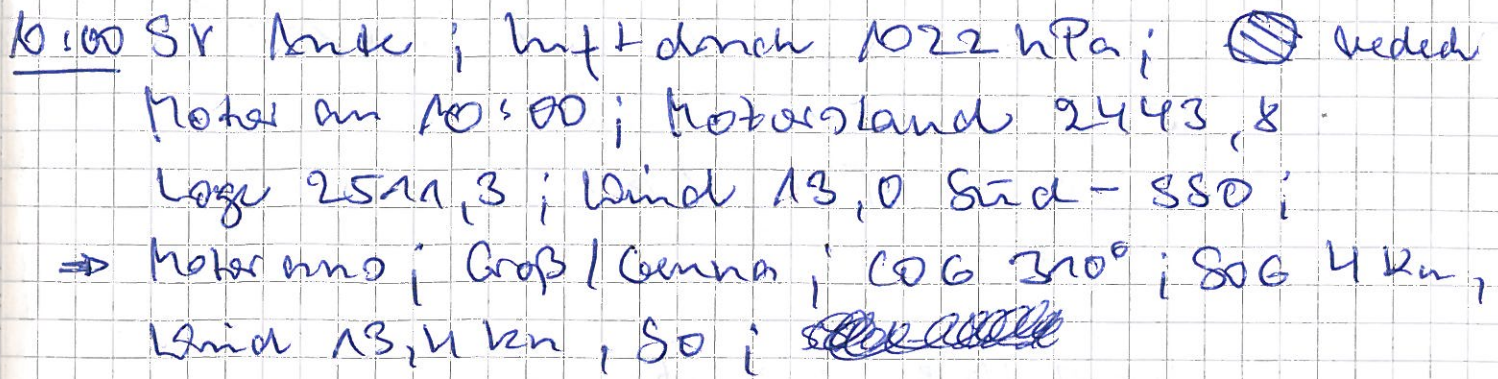 10:00 SV Anke ; Luftdruck 1022 hPa ; bedeckt
Motor an 10:00 ; Motorstand 2443,8
Logge 2511,3 ; Wind 13,0 Süd - SSO ;
⇒ Motor aus ; Groß / Genua ; COG 310° ; SOG 4 kn,
Wind 13,4 kn , SO ;